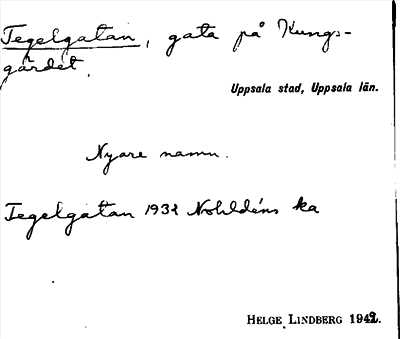 Tegelgatan, gata på Kungs-
gärdet.
Uppsala stad, Uppsala län.
Nyare namn.
Tegelgatan 1932 Nohldéns ka
HELGE LINDBERG 1942.